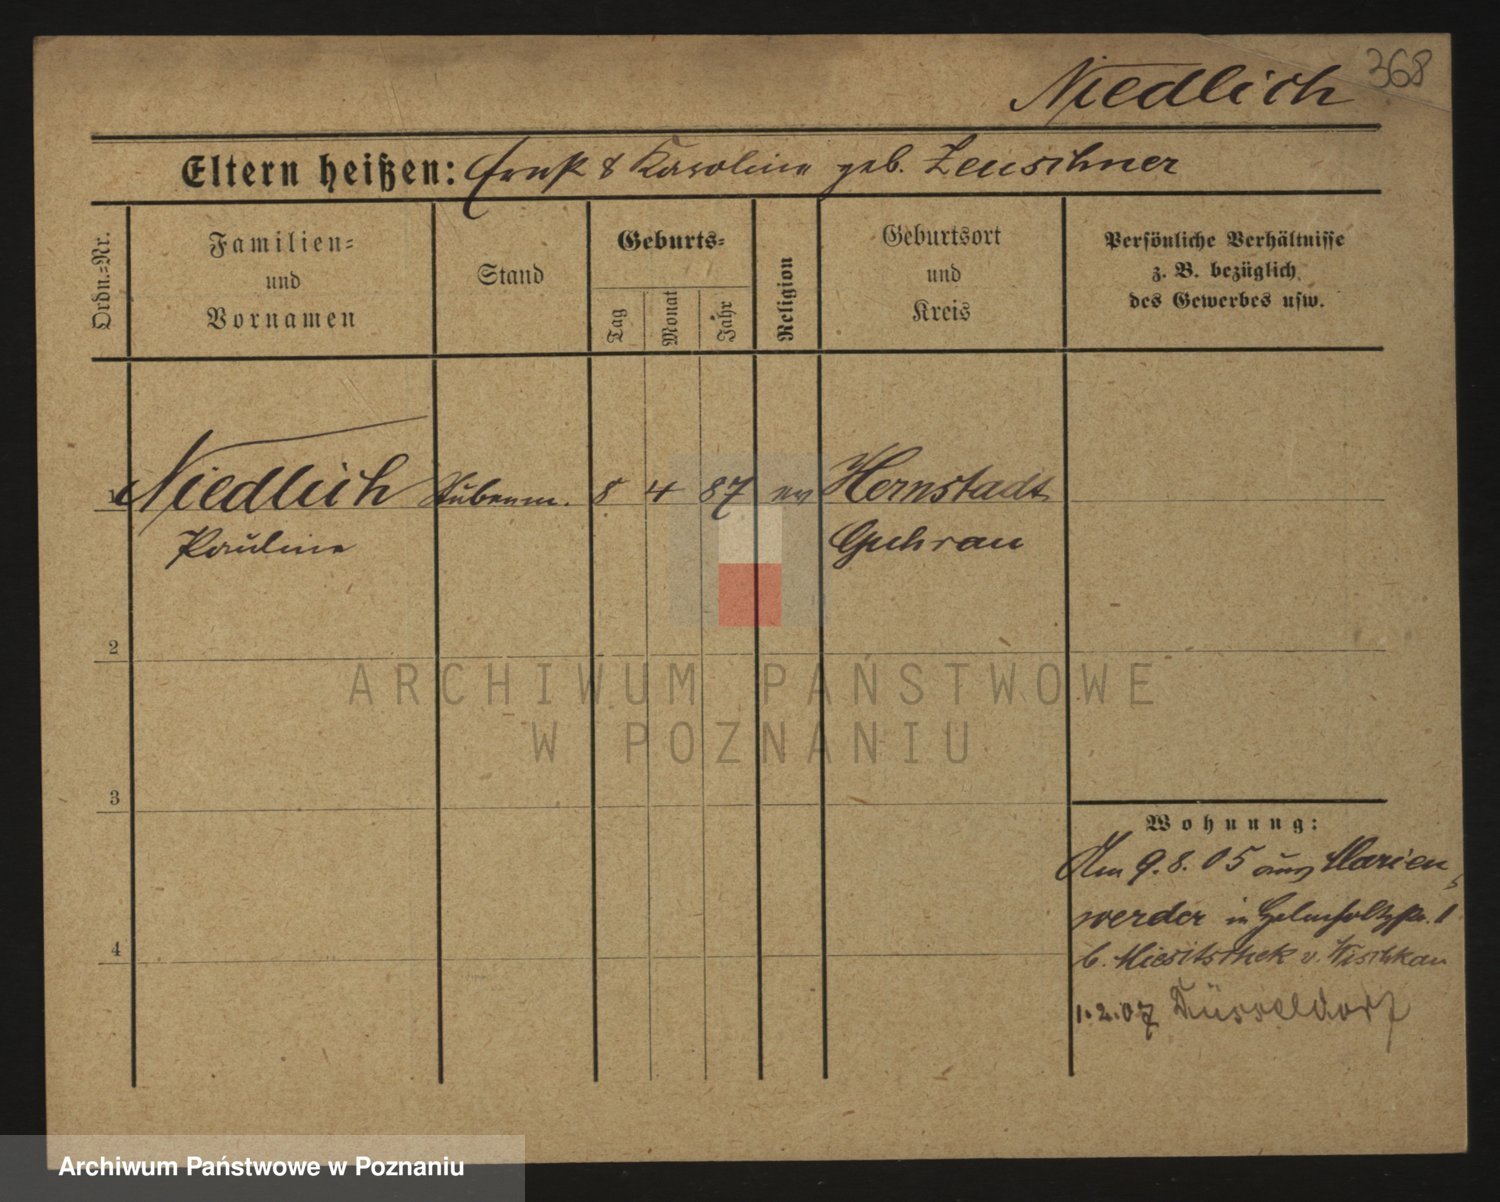 368
Niedlich
Eltern heißen: Ernst & Karoline geb. Zeuschner
Ordn.=Nr.
Familien=
und
Vornamen
Stand
Geburts=
Tag
Monat
Jahr
Religion
Geburtsort
und
Kreis
Persönliche Verhältnisse
z. B. bezüglich
des Gewerbes usw.
1 Niedlich Stubenm. 8 4 87 ev Hernstadt
Pauline Guhrau
2
3
4
Wohnung:
Am 9.8.05 aus Marien
werder in Helmholtzstr. 1
b. v.
1.2.07 Düsseldorf
ARCHIWUM PAŃSTWOWE
W POZNANIU
Archiwum Państwowe w Poznaniu